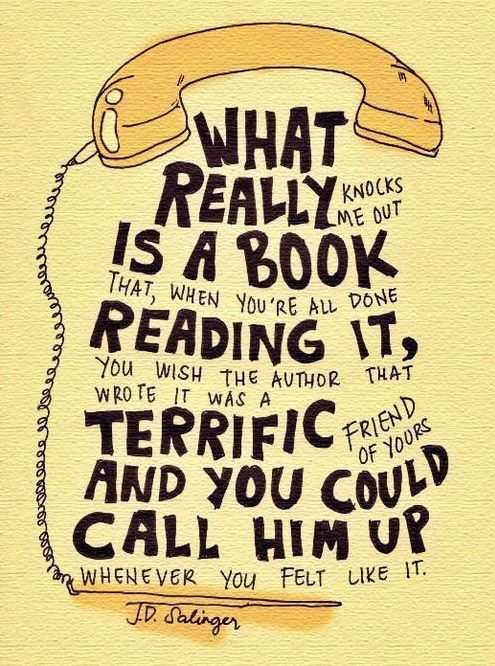 WHAT
REALLY KNOCKS ME OUT
IS A BOOK
THAT, WHEN YOU'RE ALL DONE
READING IT,
YOU WISH THE AUTHOR THAT
WROTE IT WAS A
TERRIFIC FRIEND OF YOURS
AND YOU COULD
CALL HIM UP
WHENEVER YOU FELT LIKE IT.
J.D. Salinger